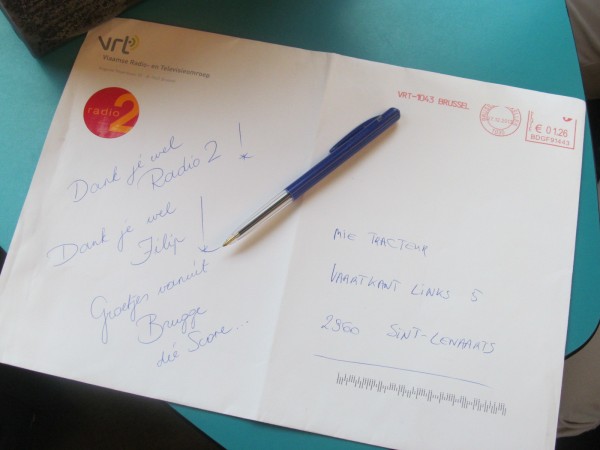 vrt
Vlaamse Radio- en Televisieomroep
radio 2
VRT-1043 BRUSSEL
€ 01.26
BDGF91443
Dank je wel
Radio 2!
Dank je wel
Filip!
Groetjes vanuit
Brugge
die Scone...
MIE TRACTEUR
VAARTKANT LINKS 5
2960 SINT-LENAARTS